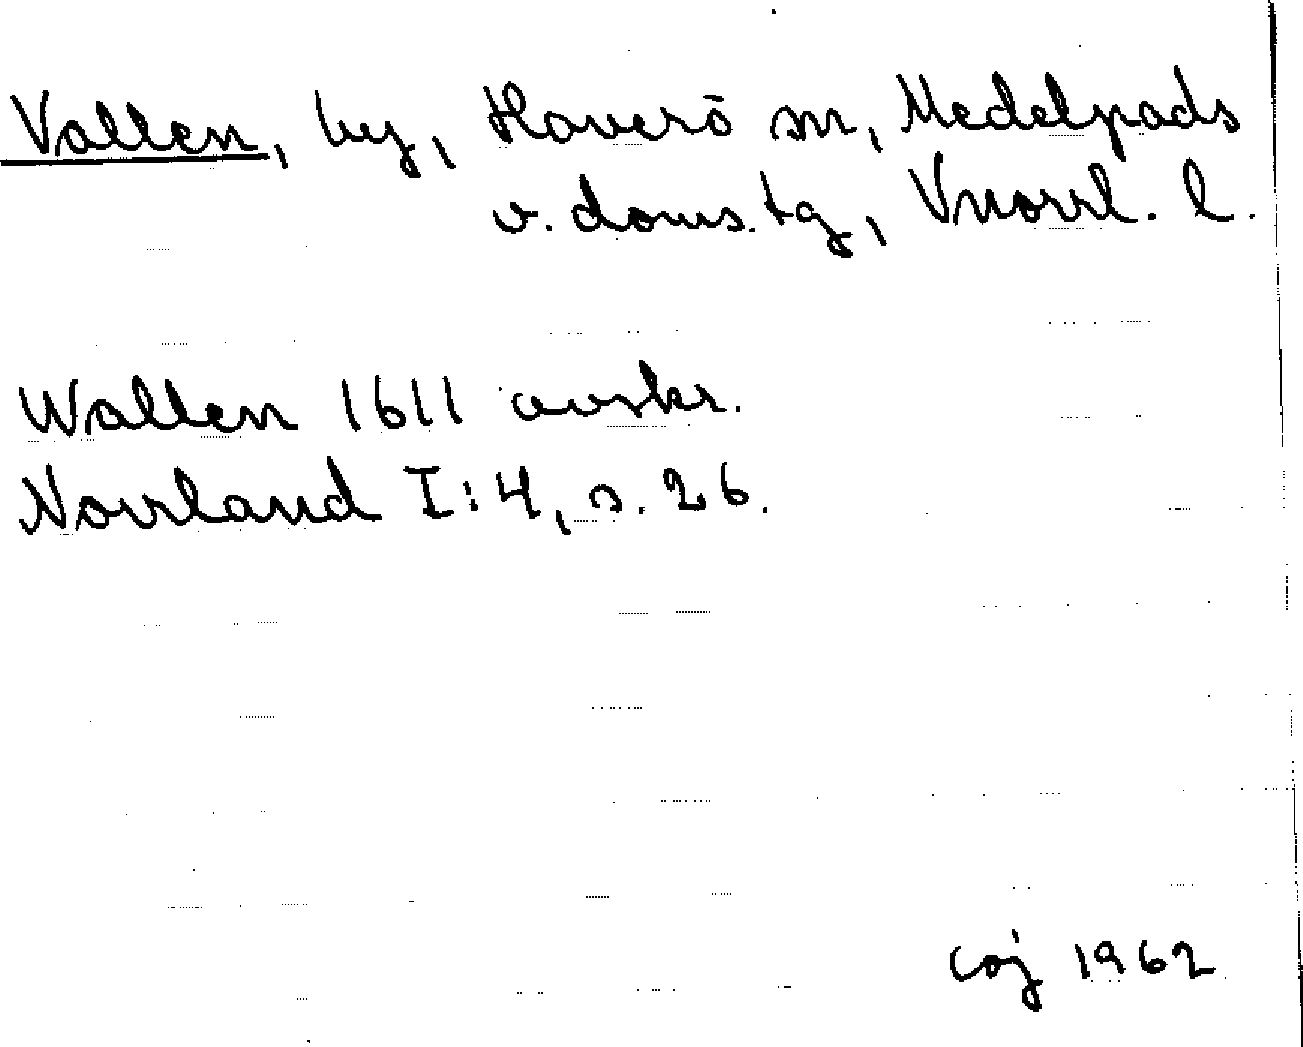 Vallen, by, Haverö sn, Medelpads
v. doms. tg, Vnorrl. l.
Wallen 1611 avskr.
Norrland I:4, s. 26.
Coj 1962